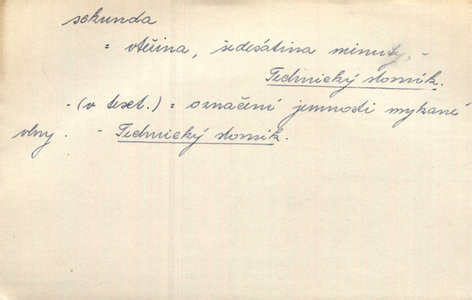 sekunda
= vteřina, šedesátina minuty. -
Technický slovník.
- (v text.) = označení jemnosti mykané
vlny. - Technický slovník.